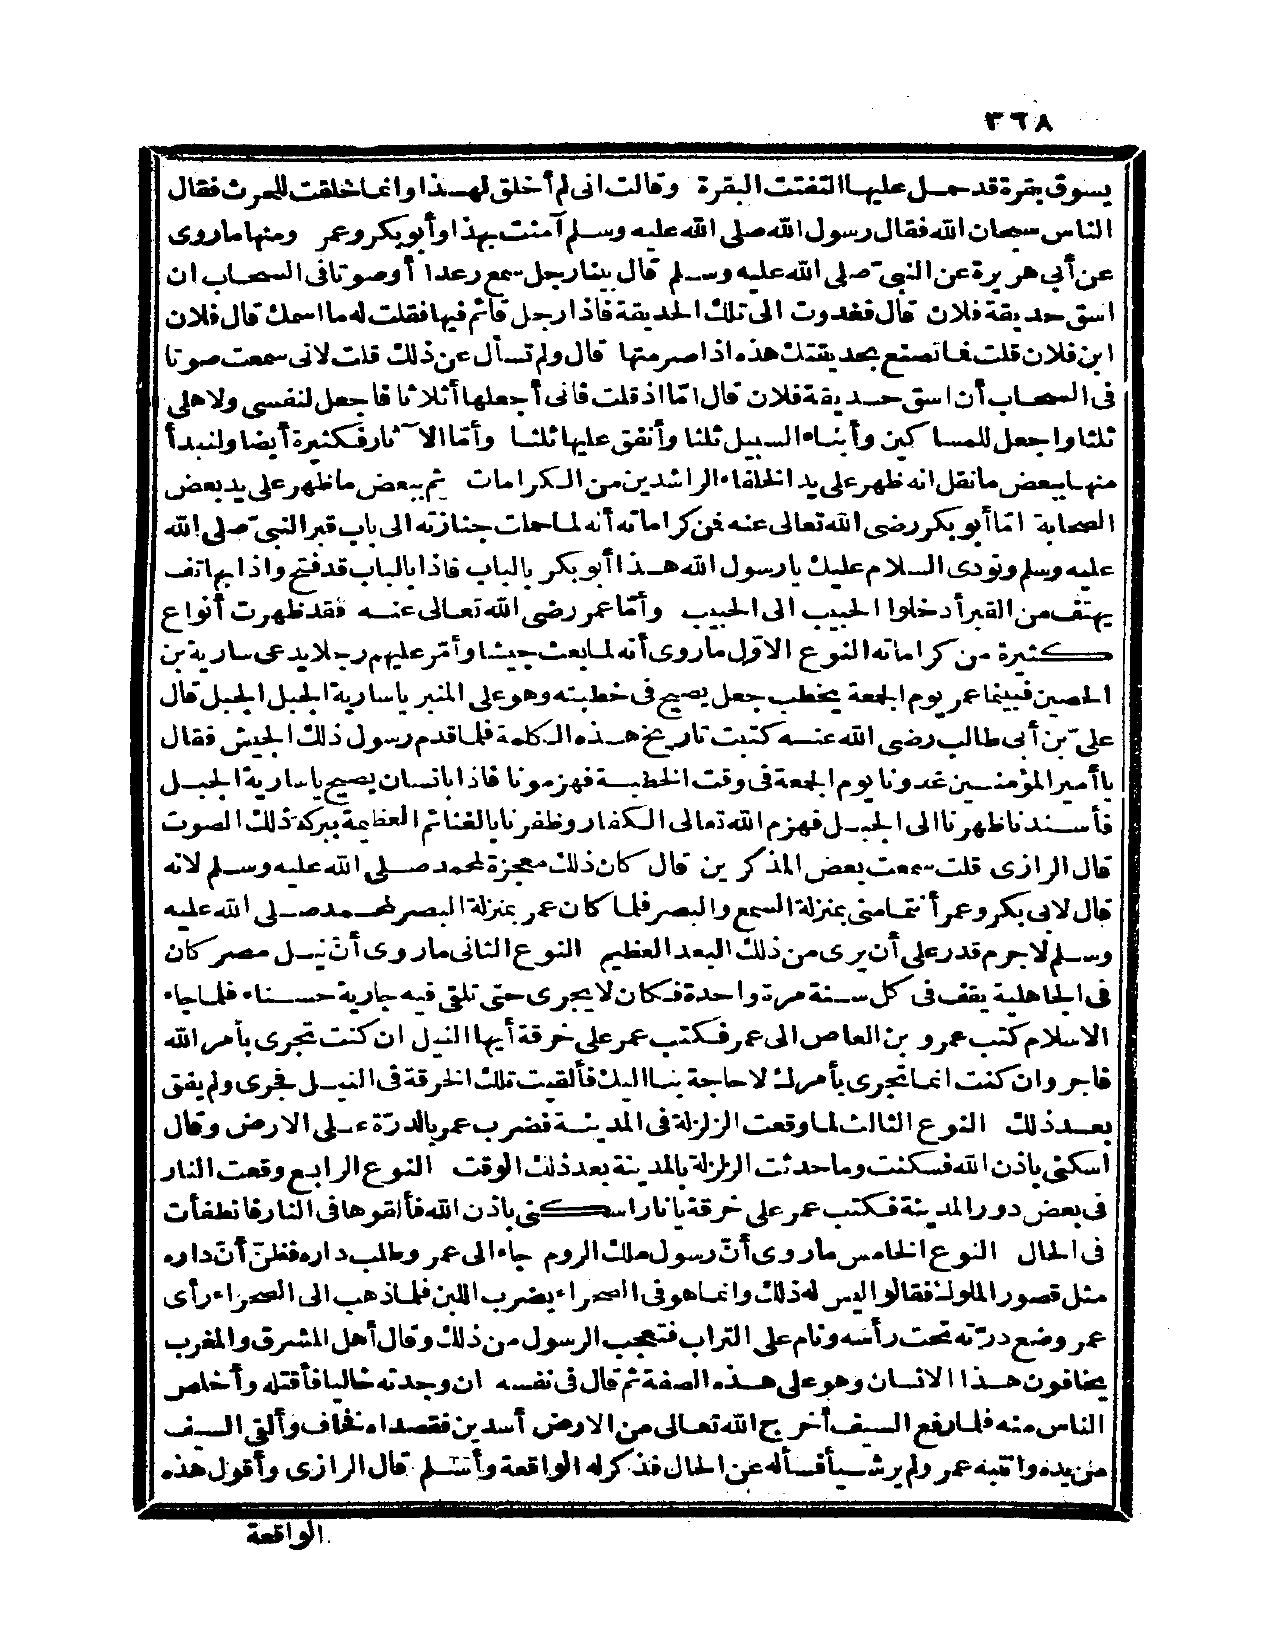 ٣٦٨
يسوق بقرة قد حمل عليها التفتت البقرة وقالت انى لم أخلق لهذا وانما خلقت للحرث فقال
الناس سبحان الله فقال رسول الله صلى الله عليه وسلم آمنت بهذا وأبو بكر وعمر ومنها ما روى
عن أبى هريرة عن النبى صلى الله عليه وسلم قال بينا رجل سمع رعدا أو صوتا فى السحاب ان
اسق حديقة فلان قال فغدوت الى تلك الحديقة فاذا رجل قائم فيها فقلت له ما اسمك قال فلان
ابن فلان قلت فما تصنع بحديقتك هذه اذا صرمتها قال ولم تسأل عن ذلك قلت لانى سمعت صوتا
فى السحاب أن اسق حديقة فلان قال امّا اذ قلت فانى أجعلها أثلاثا فاجعل لنفسى ولاهلى
ثلثا واجعل للمساكين وأبناء السبيل ثلثا وأنفق عليها ثلثا وأمّا الآثار فكثيرة أيضا ولنبدأ
منها ببعض ما نقل انه ظهر على يد الخلفاء الراشدين من الكرامات ثم ببعض ما ظهر على يد بعض
الصحابة امّا أبو بكر رضى الله تعالى عنه فمن كراماته أنه لما حملت جنازته الى باب قبر النبىّ صلى الله
عليه وسلم ونودى السلام عليك يا رسول الله هذا أبو بكر بالباب فاذا بالباب قد فتح واذا بهاتف
يهتف من القبر أدخلوا الحبيب الى الحبيب وأمّا عمر رضى الله تعالى عنه فقد ظهرت أنواع
كثيرة من كراماته النوع الاوّل ما روى أنه لما بعث جيشا وأمّر عليهم رجلا يدعى سارية بن
الحصين فبينما عمر يوم الجمعة يخطب جعل يصيح فى خطبته وهو على المنبر يا سارية الجبل الجبل قال
علىّ بن أبى طالب رضى الله عنه كتبت تاريخ هذه الكلمة فلما قدم رسول ذلك الجيش فقال
يا أمير المؤمنين غدونا يوم الجمعة فى وقت الخطبة فهزمونا فاذا بانسان يصيح يا سارية الجبل
فأسندنا ظهرنا الى الجبل فهزم الله تعالى الكفار وظفرنا بالغنائم العظيمة ببركة ذلك الصوت
قال الرازى قلت سمعت بعض المذكرين قال كان ذلك معجزة لمحمد صلى الله عليه وسلم لانه
قال لابى بكر وعمر أنتما منى بمنزلة السمع والبصر فلما كان عمر بمنزلة البصر لمحمد صلى الله عليه
وسلم لاجرم قدر على أن يرى من ذلك البعد العظيم النوع الثانى ما روى أن نيل مصر كان
فى الجاهلية يقف فى كل سنة مرة واحدة فكان لا يجرى حتى تلقى فيه جارية حسناء فلما جاء
الاسلام كتب عمرو بن العاص الى عمر فكتب عمر على خرقة أيها النيل ان كنت تجرى بأمر الله
فاجر وان كنت انما تجرى بأمرك لا حاجة بنا اليك فألقيت تلك الخرقة فى النيل فجرى ولم يقق
بعد ذلك النوع الثالث لما وقعت الزلزلة فى المدينة فضرب عمر بالدرّة على الارض وقال
اسكنى باذن الله فسكنت وما حدثت الزلزلة بالمدينة بعد ذلك الوقت النوع الرابع وقعت النار
فى بعض دور المدينة فكتب عمر على خرقة يا نار اسكنى باذن الله فألقوها فى النار فانطفأت
فى الحال النوع الخامس ما روى أنّ رسول ملك الروم جاء الى عمر وطلب داره فظنّ أنّ داره
مثل قصور الملوك فقالوا ليس له ذلك وانما هو فى الصحراء يضرب اللبن فلما ذهب الى الصحراء رأى
عمر وضع درّته تحت رأسه ونام على التراب فتعجب الرسول من ذلك وقال أهل المشرق والمغرب
يخافون هذا الانسان وهو على هذه الصفة ثم قال فى نفسه ان وجدته خاليا فأقتله وأخلص
الناس منه فلما رفع السيف أخرج الله تعالى من الارض أسدين فقصداه فخاف وألقى السيف
من يده وانتبه عمر ولم ير شيأ فسأله عن الحال فذكر له الواقعة وأسلم قال الرازى وأقول هذه
الواقعة